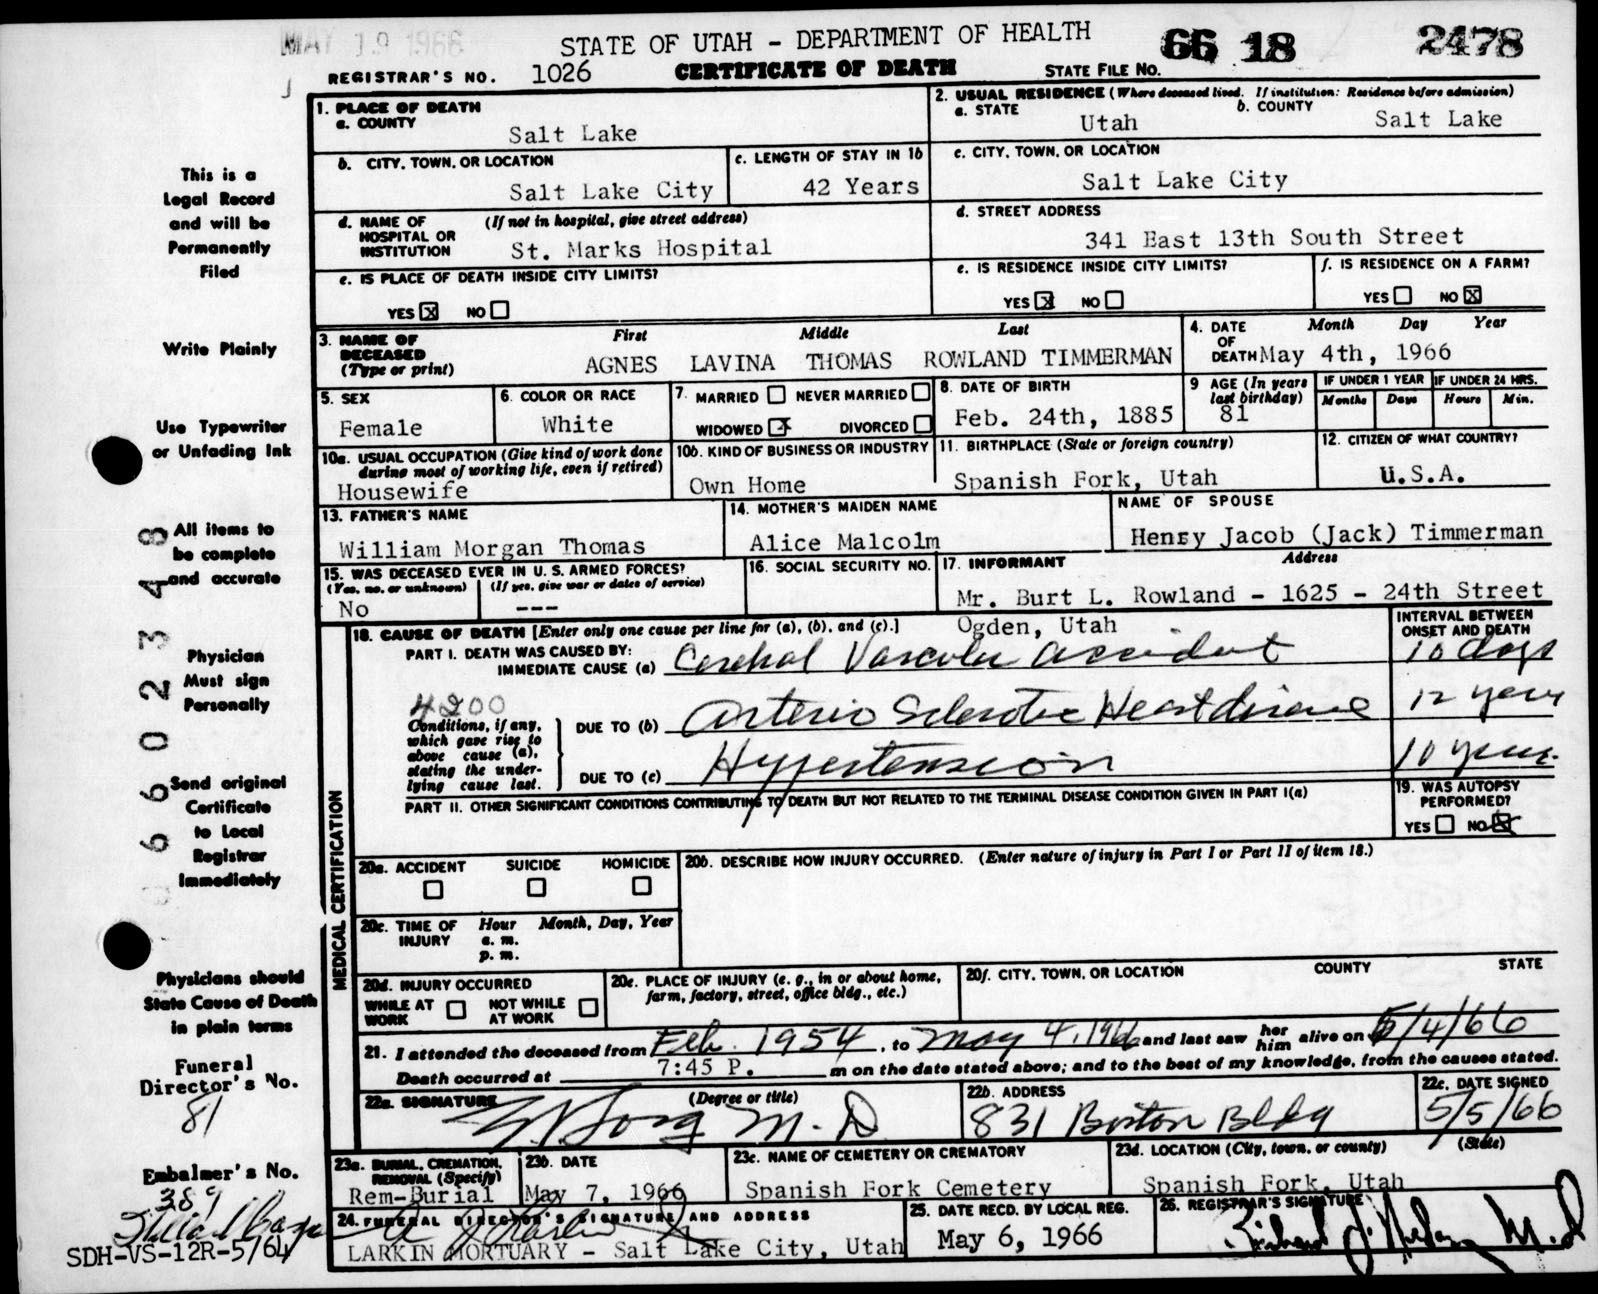 MAY 19 1966
STATE OF UTAH - DEPARTMENT OF HEALTH
66 18 2478
REGISTRAR'S NO. 1026 CERTIFICATE OF DEATH STATE FILE NO.
1. PLACE OF DEATH
a. COUNTY
Salt Lake
2. USUAL RESIDENCE (Where deceased lived. If institution: Residence before admission)
a. STATE b. COUNTY
Utah Salt Lake
b. CITY, TOWN, OR LOCATION
Salt Lake City
c. LENGTH OF STAY IN 1b
42 Years
c. CITY, TOWN, OR LOCATION
Salt Lake City
d. NAME OF HOSPITAL OR INSTITUTION (If not in hospital, give street address)
St. Marks Hospital
d. STREET ADDRESS
341 East 13th South Street
e. IS PLACE OF DEATH INSIDE CITY LIMITS?
YES X NO
e. IS RESIDENCE INSIDE CITY LIMITS?
YES X NO
f. IS RESIDENCE ON A FARM?
YES NO X
3. NAME OF DECEASED (Type or print)
First Middle Last
AGNES LAVINA THOMAS ROWLAND TIMMERMAN
4. DATE OF DEATH Month Day Year
May 4th, 1966
5. SEX
Female
6. COLOR OR RACE
White
7. MARRIED NEVER MARRIED
WIDOWED X DIVORCED
8. DATE OF BIRTH
Feb. 24th, 1885
9 AGE (In years last birthday)
81
IF UNDER 1 YEAR IF UNDER 24 HRS.
Months Days Hours Min.
10a. USUAL OCCUPATION (Give kind of work done during most of working life, even if retired)
Housewife
10b. KIND OF BUSINESS OR INDUSTRY
Own Home
11. BIRTHPLACE (State or foreign country)
Spanish Fork, Utah
12. CITIZEN OF WHAT COUNTRY?
U.S.A.
13. FATHER'S NAME
William Morgan Thomas
14. MOTHER'S MAIDEN NAME
Alice Malcolm
NAME OF SPOUSE
Henry Jacob (Jack) Timmerman
15. WAS DECEASED EVER IN U. S. ARMED FORCES?
(Yes, no, or unknown) (If yes, give war or dates of service)
No ---
16. SOCIAL SECURITY NO.
17. INFORMANT Address
Mr. Burt L. Rowland - 1625 - 24th Street
Ogden, Utah
18. CAUSE OF DEATH [Enter only one cause per line for (a), (b), and (c).]
INTERVAL BETWEEN ONSET AND DEATH
PART I. DEATH WAS CAUSED BY:
IMMEDIATE CAUSE (a) Cerebral Vascular accident 10 days
4200
Conditions, if any, which gave rise to above cause (a), stating the underlying cause last.
DUE TO (b) Arterio Sclerotic Heart disease 12 years
DUE TO (c) Hypertension 10 years
PART II. OTHER SIGNIFICANT CONDITIONS CONTRIBUTING TO DEATH BUT NOT RELATED TO THE TERMINAL DISEASE CONDITION GIVEN IN PART I(a)
19. WAS AUTOPSY PERFORMED?
YES NO X
MEDICAL CERTIFICATION
20a. ACCIDENT SUICIDE HOMICIDE
20b. DESCRIBE HOW INJURY OCCURRED. (Enter nature of injury in Part I or Part II of item 18.)
20c. TIME OF INJURY Hour Month, Day, Year
a. m.
p. m.
20d. INJURY OCCURRED
WHILE AT WORK NOT WHILE AT WORK
20e. PLACE OF INJURY (e. g., in or about home, farm, factory, street, office bldg., etc.)
20f. CITY, TOWN, OR LOCATION COUNTY STATE
21. I attended the deceased from Feb. 1954, to May 4, 1966 and last saw her him alive on 5/4/66
Death occurred at 7:45 P. m on the date stated above; and to the best of my knowledge, from the causes stated.
22a. SIGNATURE (Degree or title)
M. D
22b. ADDRESS
831 Boston Bldg
22c. DATE SIGNED
5/5/66
23a. BURIAL, CREMATION, REMOVAL (Specify)
Rem-Burial
23b. DATE
May 7, 1966
23c. NAME OF CEMETERY OR CREMATORY
Spanish Fork Cemetery
23d. LOCATION (City, town, or county) (State)
Spanish Fork, Utah
24. FUNERAL DIRECTOR'S SIGNATURE AND ADDRESS
LARKIN MORTUARY - Salt Lake City, Utah
25. DATE RECD. BY LOCAL REG.
May 6, 1966
26. REGISTRAR'S SIGNATURE
M.D
This is a
Legal Record
and will be
Permanently
Filed
Write Plainly
Use Typewriter
or Unfading Ink
All items to
be complete
and accurate
Physician
Must sign
Personally
Send original
Certificate
to Local
Registrar
Immediately
Physicians should
State Cause of Death
in plain terms
Funeral
Director's No.
81
Embalmer's No.
389
SDH-VS-12R-5/64
660234 8